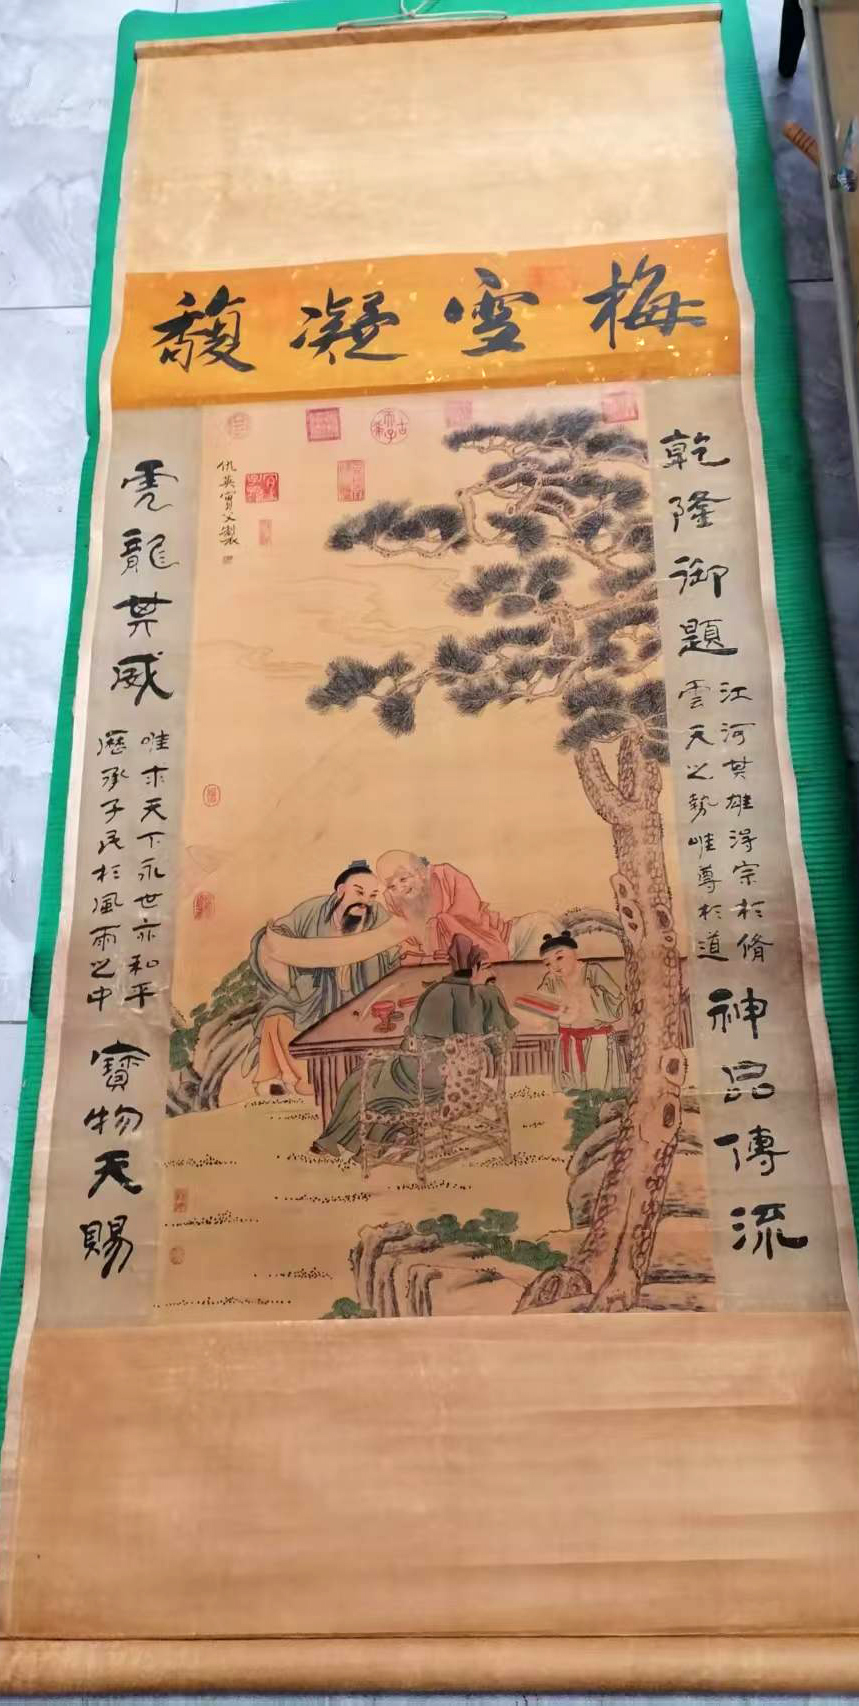 梅雪凝馥
乾隆御題
江河其雄得宗於脩
雲天之勢唯尊於道
神品傳流
仇英實父製
虎龍其威
唯求天下永世亦和平
歷承子民於風雨之中
寶物天賜